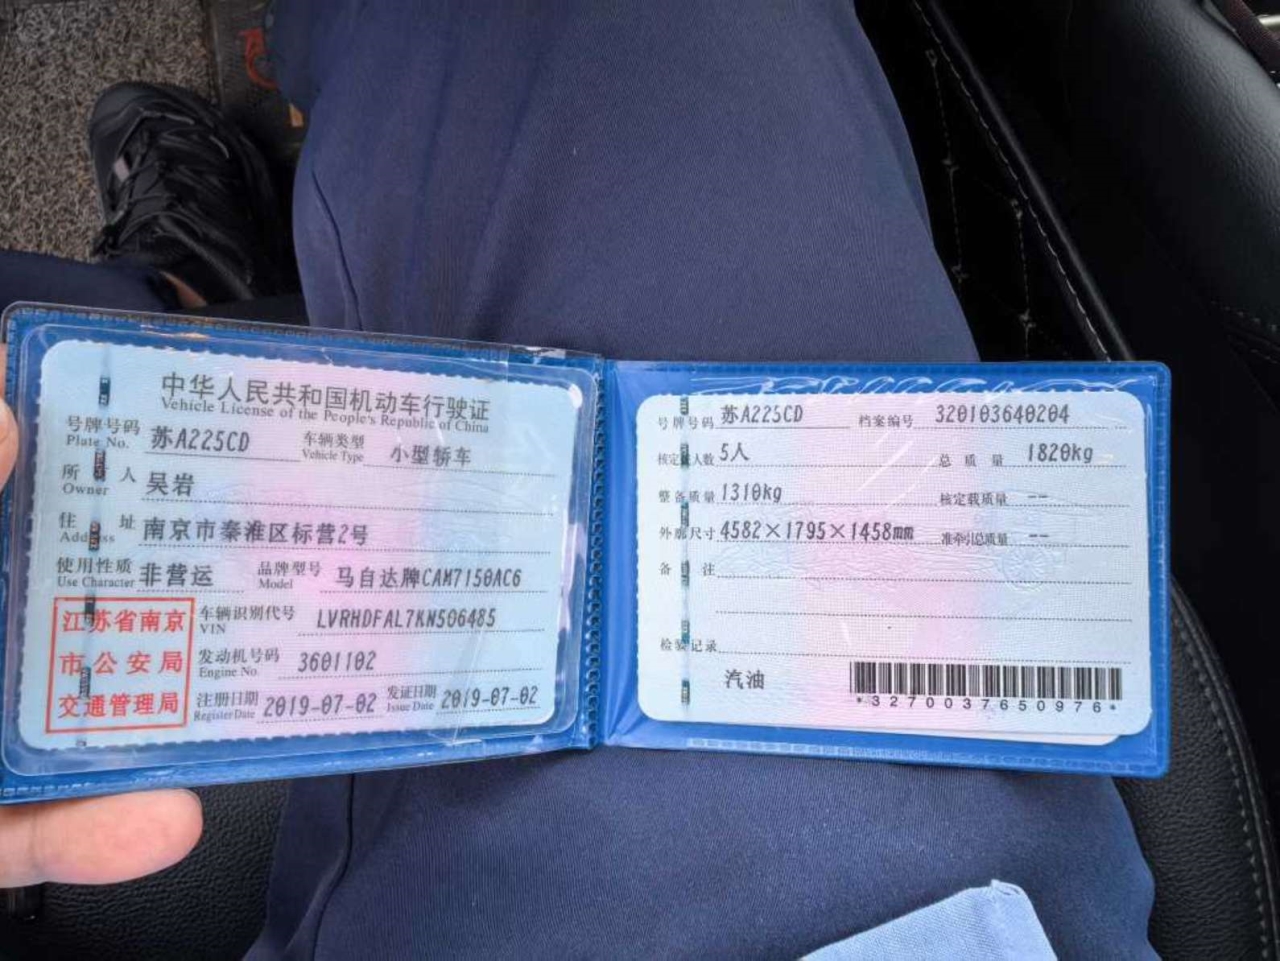 中华人民共和国机动车行驶证
Vehicle License of the People's Republic of China
号牌号码 苏A225CD 车辆类型 小型轿车
Plate No. Vehicle Type
所有人 吴岩
Owner
住址 南京市秦淮区标营2号
Address
使用性质 非营运 品牌型号 马自达牌CAM7150AC6
Use Character Model
江苏省南京
市公安局
交通管理局
车辆识别代号 LVRHDFAL7KN506485
VIN
发动机号码 3601102
Engine No.
注册日期 2019-07-02 发证日期 2019-07-02
Register Date Issue Date
号牌号码 苏A225CD 档案编号 320103640204
核定载人数 5人 总质量 1820kg
整备质量 1310kg 核定载质量 --
外廓尺寸 4582×1795×1458mm 准牵引总质量 --
备注
检验记录
汽油
*3270037650976*